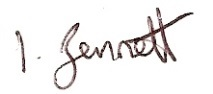 J. Bennett